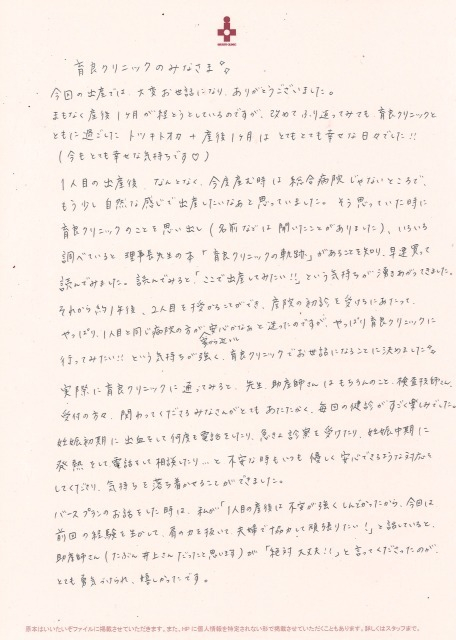 育良クリニックのみなさま
今回の出産では、大変お世話になり、ありがとうございました。
まもなく産後1ヶ月が経とうとしているのですが、改めてふり返ってみても、育良クリニックと
ともに過ごした トツキトオカ + 産後1ヶ月は とてもとても幸せな日々でした!!
(今もとても幸せな気持ちです♡)
1人目の出産後、なんとなく、今度産む時は 総合病院じゃないところで、
もう少し自然な感じで出産したいなぁと思っていました。そう思っていた時に
育良クリニックのことを思い出し(名前などは聞いたことがありました)、いろいろ
調べていると 理事長先生の本「育良クリニックの軌跡」があることを知り、早速買って
読んでみました。読んでみると「ここで出産してみたい!!」という気持ちが湧きあがってきました。
それから約1年後、2人目を授かることができ、産院の初診を受けるにあたって、
やっぱり、1人目と同じ病院の方が安心かなぁと迷ったのですが、やっぱり育良クリニックに
行ってみたい!!という気持ちが強く、育良クリニックでお世話になることに決めました
実際に育良クリニックに通ってみると、先生、助産師さんはもちろんのこと、検査技師さん、
受付の方々、関わってくださるみなさんがとてもあたたかく、毎回の健診がすごく楽しみでした。
妊娠初期に出血をして何度も電話をしたり、急きょ診察を受けたり、妊娠中期に
発熱をして電話をして相談したり…と 不安な時もいつも優しく安心できるような対応を
してくださり、気持ちを落ち着かせることができました。
バースプランのお話をした時に、私が「1人目の産後は不安が強くしんどかったから、今回は
前回の経験を生かして、肩の力を抜いて、夫婦で協力して頑張りたい!」と話していると、
助産師さん(たぶん井上さんだったと思います)が「絶対大丈夫!!」と言ってくださったのが、
とても勇気づけられ、嬉しかったです。
原本はいいたいそファイルに掲載させていただきます。また、HPに個人情報を特定されない形で掲載させていただくこともあります。詳しくはスタッフまで。